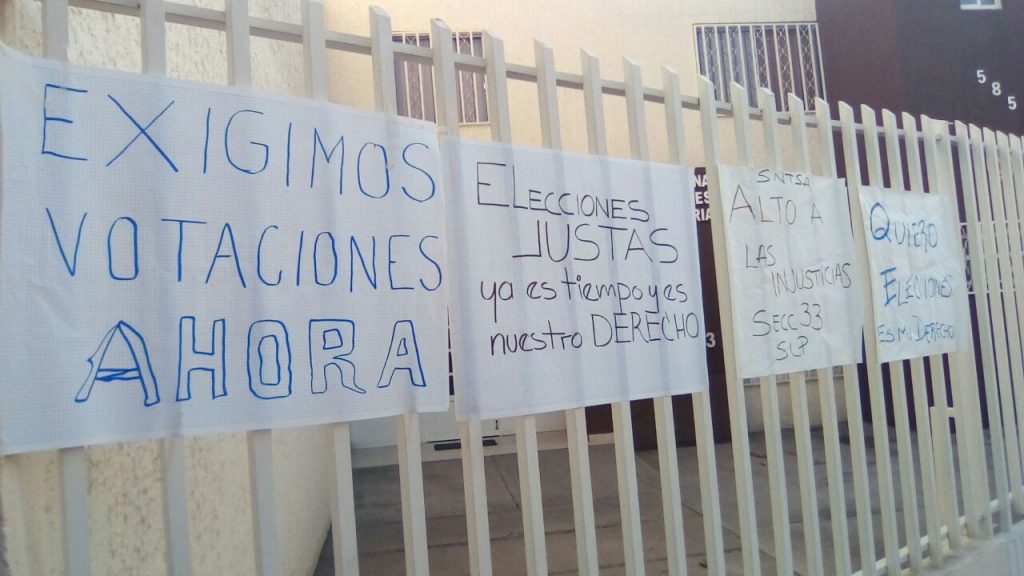 EXIGIMOS
VOTACIONES
AHORA
ELECCIONES
JUSTAS
ya es tiempo y es
nuestro DERECHO
SNTSA
ALTO A
LAS
INJUSTICIAS
SECC 33
SLP
QUIERO
ELECCIONES
ES MI DERECHO
585
NA
ES
RIA
3